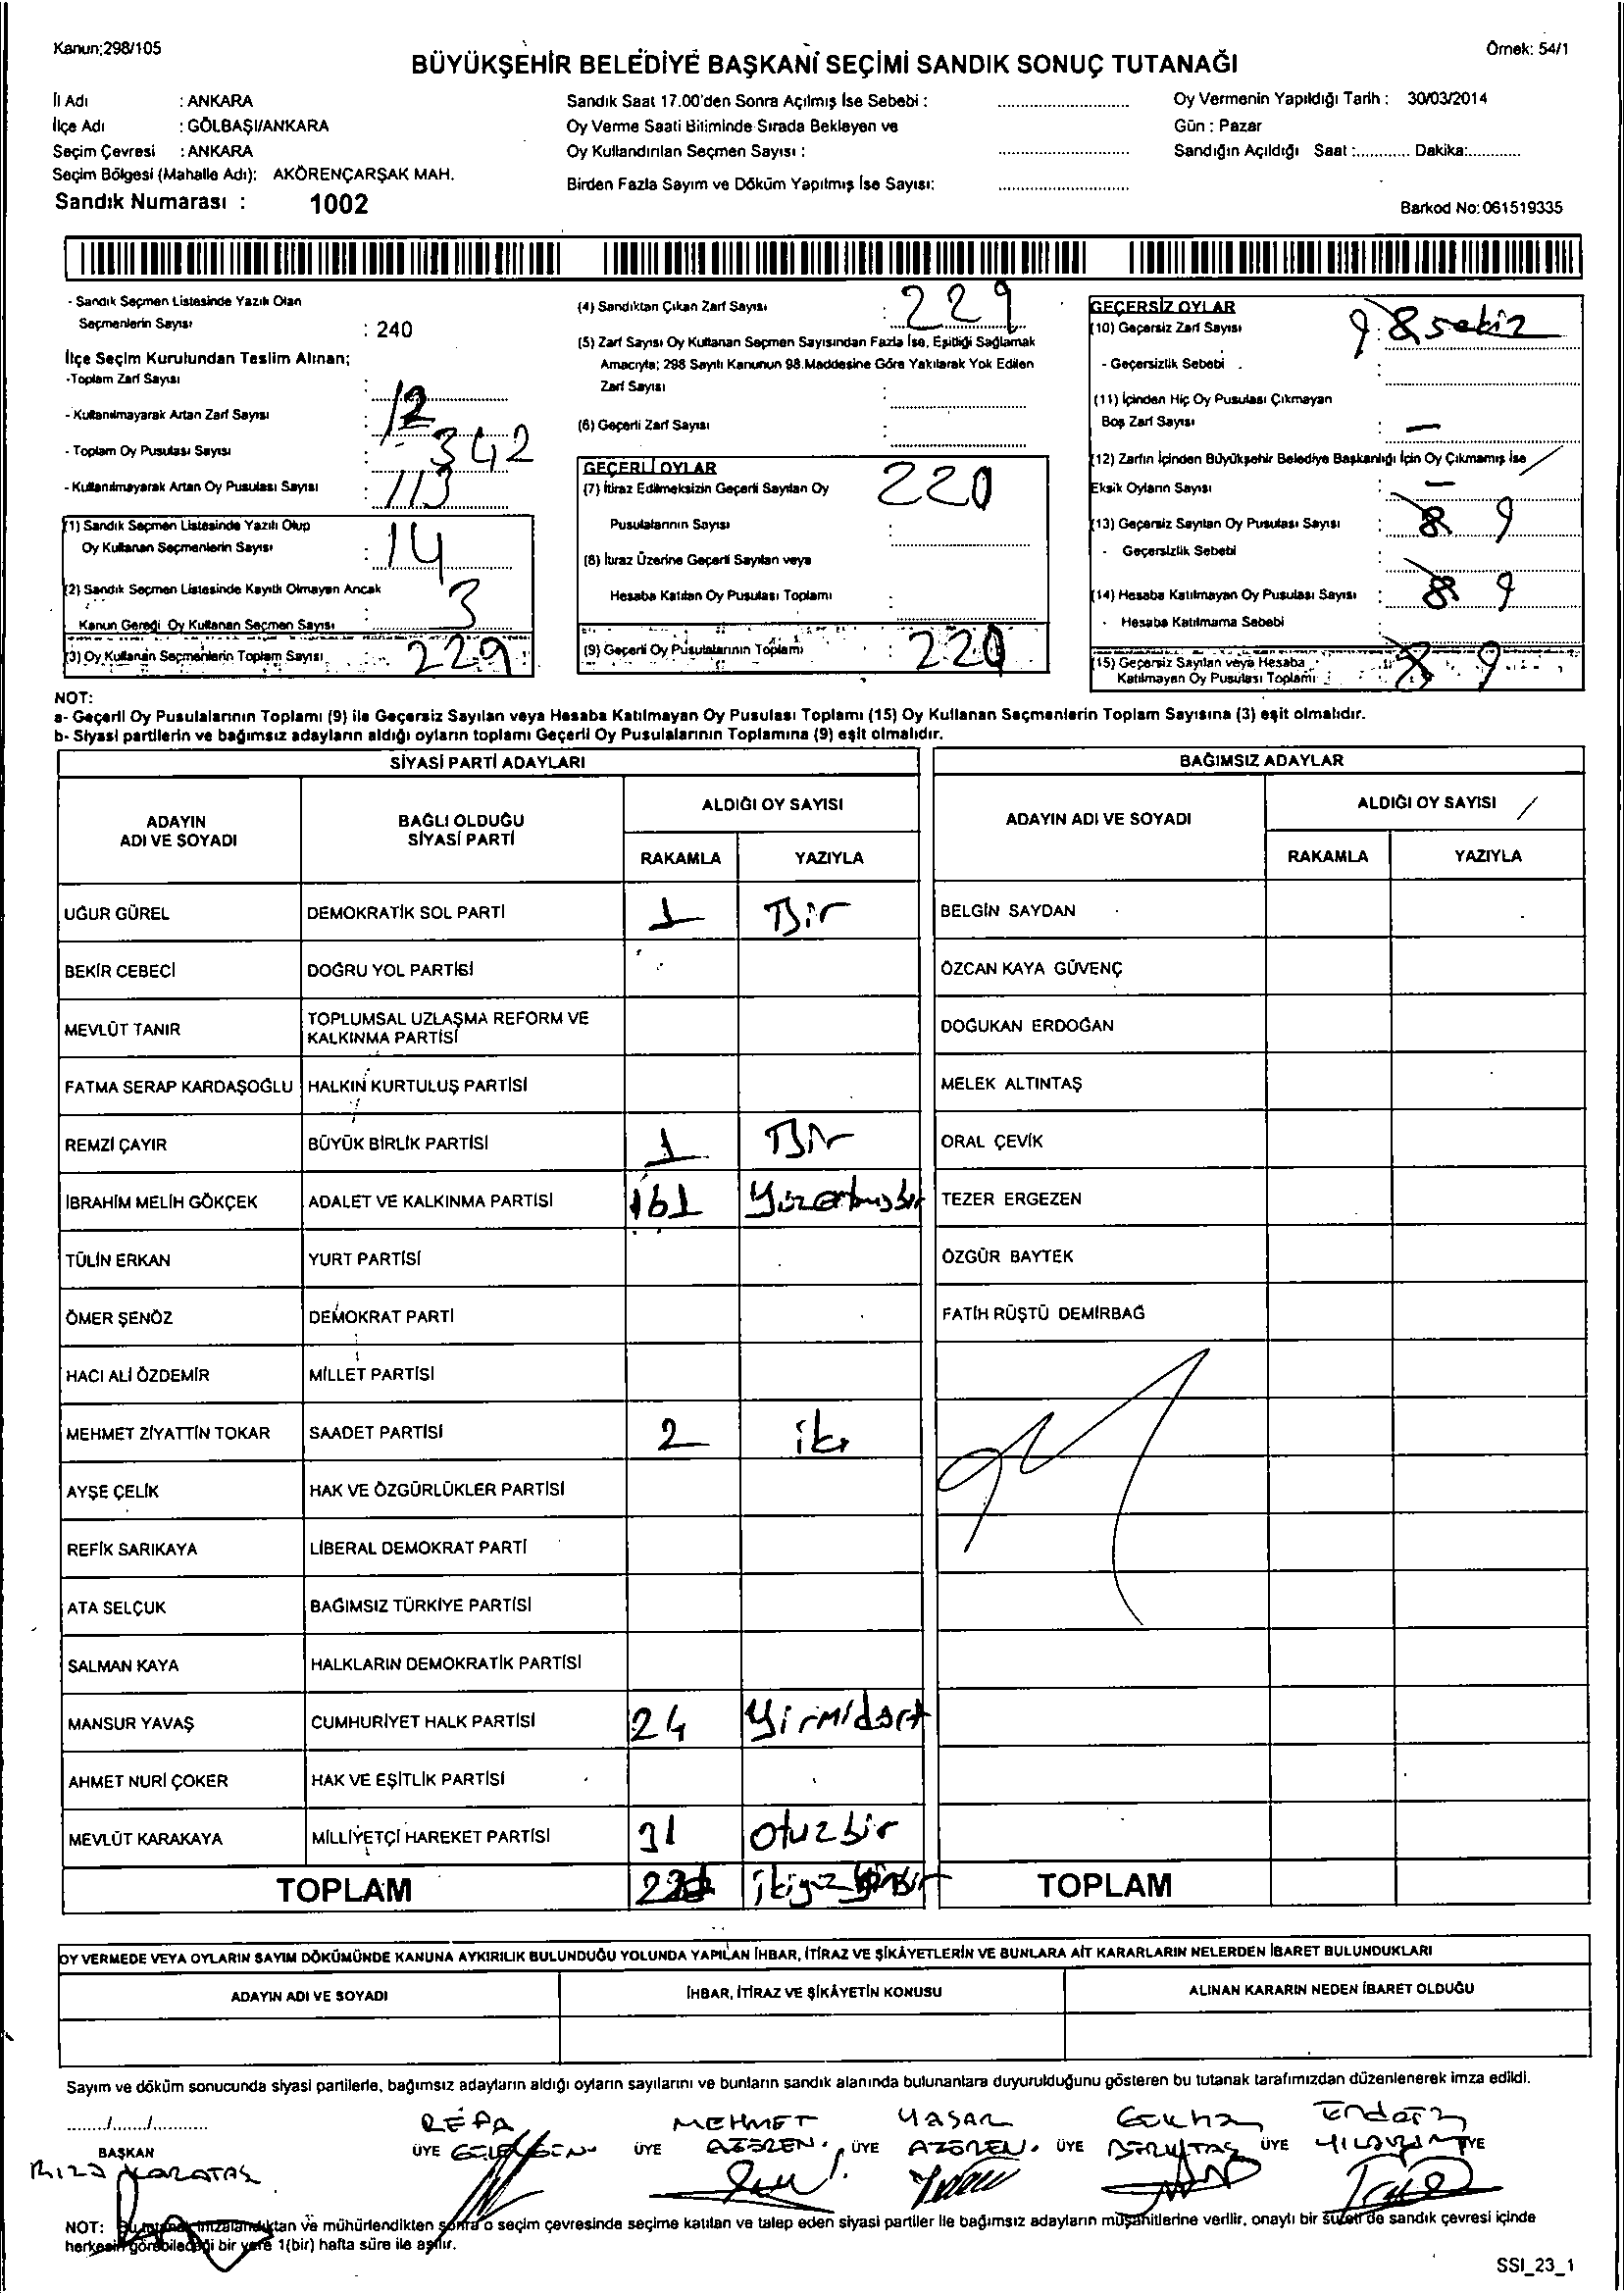 Kanun;298/105
Örnek: 54/1
BÜYÜKŞEHİR BELEDİYE BAŞKANI SEÇİMİ SANDIK SONUÇ TUTANAĞI
İl Adı : ANKARA
İlçe Adı : GÖLBAŞI/ANKARA
Seçim Çevresi : ANKARA
Seçim Bölgesi (Mahalle Adı): AKÖRENÇARŞAK MAH.
Sandık Numarası : 1002
Sandık Saat 17.00'den Sonra Açılmış İse Sebebi : ..............................
Oy Verme Saati Bitiminde Sırada Bekleyen ve
Oy Kullandırılan Seçmen Sayısı : ..............................
Birden Fazla Sayım ve Döküm Yapılmış İse Sayısı: ..............................
Oy Vermenin Yapıldığı Tarih : 30/03/2014
Gün : Pazar
Sandığın Açıldığı Saat :............ Dakika:............
Barkod No: 061519335
- Sandık Seçmen Listesinde Yazılı Olan
Seçmenlerin Sayısı : 240
İlçe Seçim Kurulundan Teslim Alınan;
-Toplam Zarf Sayısı :
- Kullanılmayarak Artan Zarf Sayısı : 12
- Toplam Oy Pusulası Sayısı : 342
- Kullanılmayarak Artan Oy Pusulası Sayısı : 113
(1) Sandık Seçmen Listesinde Yazılı Olup
Oy Kullanan Seçmenlerin Sayısı : 14
(2) Sandık Seçmen Listesinde Kayıtlı Olmayan Ancak
Kanun Gereği Oy Kullanan Seçmen Sayısı 3
(3) Oy Kullanan Seçmenlerin Toplam Sayısı : 229
(4) Sandıktan Çıkan Zarf Sayısı : 229
(5) Zarf Sayısı Oy Kullanan Seçmen Sayısından Fazla İse, Eşitliği Sağlamak
Amacıyla; 298 Sayılı Kanunun 98.Maddesine Göre Yakılarak Yok Edilen
Zarf Sayısı :
(6) Geçerli Zarf Sayısı :
GEÇERLİ OYLAR
(7) İtiraz Edilmeksizin Geçerli Sayılan Oy 220
Pusulalarının Sayısı :
(8) İtiraz Üzerine Geçerli Sayılan veya
Hesaba Katılan Oy Pusulası Toplamı :
(9) Geçerli Oy Pusulalarının Toplamı : 220
GEÇERSİZ OYLAR
(10) Geçersiz Zarf Sayısı : 9 8 sekiz
- Geçersizlik Sebebi :
(11) İçinden Hiç Oy Pusulası Çıkmayan
Boş Zarf Sayısı : —
(12) Zarfın İçinden Büyükşehir Belediye Başkanlığı İçin Oy Çıkmamış İse
Eksik Oyların Sayısı : —
(13) Geçersiz Sayılan Oy Pusulası Sayısı : 8 9
- Geçersizlik Sebebi :
(14) Hesaba Katılmayan Oy Pusulası Sayısı : 8 9
- Hesaba Katılmama Sebebi :
(15) Geçersiz Sayılan veya Hesaba
Katılmayan Oy Pusulası Toplamı : 8 9
NOT:
a- Geçerli Oy Pusulalarının Toplamı (9) ile Geçersiz Sayılan veya Hesaba Katılmayan Oy Pusulası Toplamı (15) Oy Kullanan Seçmenlerin Toplam Sayısına (3) eşit olmalıdır.
b- Siyasi partilerin ve bağımsız adayların aldığı oyların toplamı Geçerli Oy Pusulalarının Toplamına (9) eşit olmalıdır.
SİYASİ PARTİ ADAYLARI
ADAYIN
ADI VE SOYADI
BAĞLI OLDUĞU
SİYASİ PARTİ
ALDIĞI OY SAYISI
RAKAMLA YAZIYLA
UĞUR GÜREL DEMOKRATİK SOL PARTİ 1 Bir
BEKİR CEBECİ DOĞRU YOL PARTİSİ
MEVLÜT TANIR TOPLUMSAL UZLAŞMA REFORM VE
KALKINMA PARTİSİ
FATMA SERAP KARDAŞOĞLU HALKIN KURTULUŞ PARTİSİ
REMZİ ÇAYIR BÜYÜK BİRLİK PARTİSİ 1 Bir
İBRAHİM MELİH GÖKÇEK ADALET VE KALKINMA PARTİSİ 161 Yüzaltmışbir
TÜLİN ERKAN YURT PARTİSİ
ÖMER ŞENÖZ DEMOKRAT PARTİ
HACI ALİ ÖZDEMİR MİLLET PARTİSİ
MEHMET ZİYATTİN TOKAR SAADET PARTİSİ 2 iki
AYŞE ÇELİK HAK VE ÖZGÜRLÜKLER PARTİSİ
REFİK SARIKAYA LİBERAL DEMOKRAT PARTİ
ATA SELÇUK BAĞIMSIZ TÜRKİYE PARTİSİ
SALMAN KAYA HALKLARIN DEMOKRATİK PARTİSİ
MANSUR YAVAŞ CUMHURİYET HALK PARTİSİ 24 Yirmidört
AHMET NURİ ÇOKER HAK VE EŞİTLİK PARTİSİ
MEVLÜT KARAKAYA MİLLİYETÇİ HAREKET PARTİSİ 31 Otuzbir
TOPLAM
BAĞIMSIZ ADAYLAR
ADAYIN ADI VE SOYADI
ALDIĞI OY SAYISI
RAKAMLA YAZIYLA
BELGİN SAYDAN
ÖZCAN KAYA GÜVENÇ
DOĞUKAN ERDOĞAN
MELEK ALTINTAŞ
ORAL ÇEVİK
TEZER ERGEZEN
ÖZGÜR BAYTEK
FATİH RÜŞTÜ DEMİRBAĞ
TOPLAM
OY VERMEDE VEYA OYLARIN SAYIM DÖKÜMÜNDE KANUNA AYKIRILIK BULUNDUĞU YOLUNDA YAPILAN İHBAR, İTİRAZ VE ŞİKÂYETLERİN VE BUNLARA AİT KARARLARIN NELERDEN İBARET BULUNDUKLARI
ADAYIN ADI VE SOYADI
İHBAR, İTİRAZ VE ŞİKÂYETİN KONUSU
ALINAN KARARIN NEDEN İBARET OLDUĞU
Sayım ve döküm sonucunda siyasi partilerle, bağımsız adayların aldığı oyların sayılarını ve bunların sandık alanında bulunanlara duyurulduğunu gösteren bu tutanak tarafımızdan düzenlenerek imza edildi.
....../....../..........
BAŞKAN
RIZA KARATAŞ
ÜYE
ÜYE MEHMET
ÜYE YAŞAR
ÜYE Gökhan
ÜYE YILDIRIM
ÜYE
NOT: Bu tutanak imzalandıktan ve mühürlendikten sonra o seçim çevresinde seçime katılan ve talep eden siyasi partiler ile bağımsız adayların müşahitlerine verilir, onaylı bir sureti de sandık çevresi içinde
herkesin görebileceği bir yere 1(bir) hafta süre ile asılır.
SSI_23_1